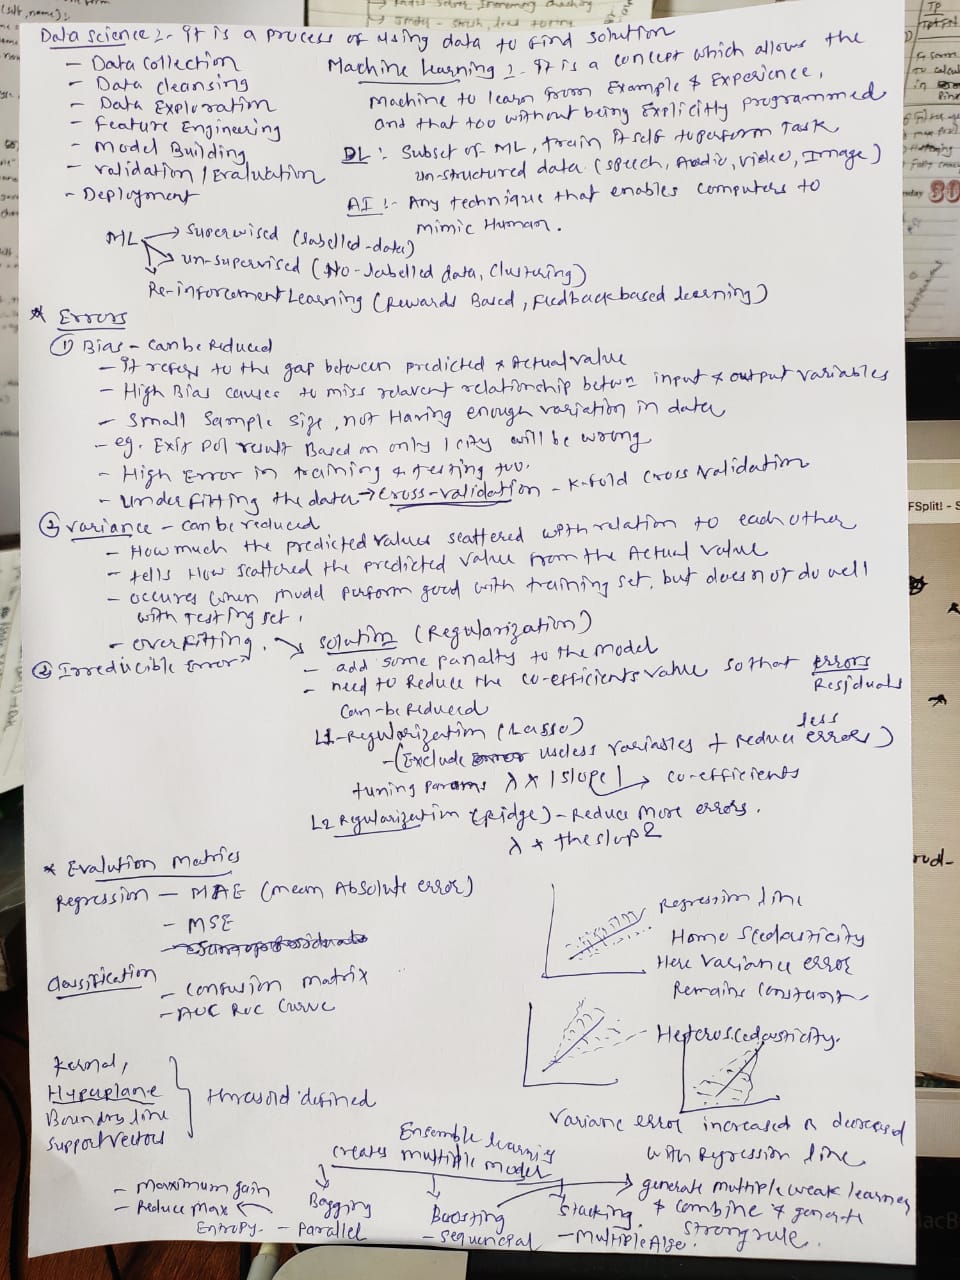 Data science :- It is a process of using data to find solution
- Data collection
- Data cleansing
- Data Exploration
- Feature Engineering
- Model Building
- validation / Evaluation
- Deployment
Machine learning :- It is a concept which allows the
Machine to learn from Example & Experience,
and that too without being Explicitly programmed
DL :- Subset of ML, train itself to perform Task
un-structured data (speech, Audio, video, Image)
AI :- Any technique that enables computers to
mimic Human.
ML → Supervised (labelled-data)
un-supervised (No-labelled data, clustering)
Re-inforcement Learning (Rewards Based, Feedback based learning)
* Errors
① Bias - can be Reduced
- It refers to the gap between predicted & Actual value
- High Bias causes to miss relavent relationship between input & output variables
- Small Sample size, not Having enough variation in data
- eg. Exit pol result Based on only 1 city will be wrong
- High Error in training & testing too.
- Under fitting the data → Cross-validation - K-fold Cross Validation
② Variance - can be reduced
- How much the predicted values scattered with relation to each other
- tells How scattered the predicted value from the Actual value
- occures when model perform good with training set, but does not do well
with testing set.
- over fitting. → solution (Regularization)
③ Irreducible Error
- add some panalty to the model
- need to Reduce the co-efficients value so that errors
Residuals
can be Reduced
L1-Regularization (Lasso)
less
- (Exclude useless variables + reduce errors)
tuning params λ × |slope| → co-efficients
L2 Regularization (Ridge) - Reduce More errors.
λ * the slop2
* Evalution Matrics
Regression - MAE (mean Absolute error)
- MSE
Classification
- Confusion matrix
- AUC ROC Curve
Regression line
Homo Scedasticity
Here Variance error
Remains Constant
Heteroscedasticity.
Variane error increased or decreased
with Regression line
Kernal,
Hyperplane
Boundry line
Support Vectors
defined
Ensemble learning
creates multiple model
Bagging
- Parallel
- Maximum gain
- Reduce Max
Entropy.
Boosting
- sequencial
Stacking.
- Multiple Algo.
generate multiple weak learner
& combine & generate
strong rule.
FSplit! - S